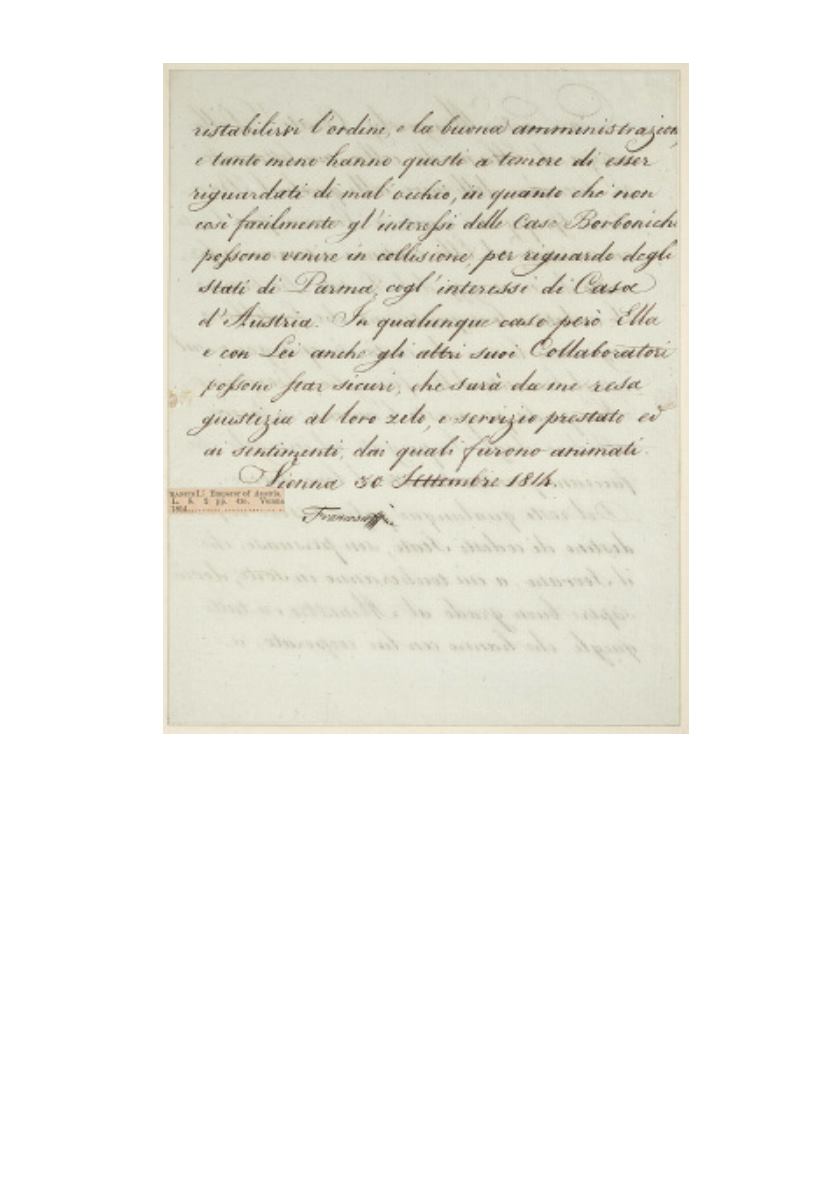 ristabilirvi l'ordine, e la buona amministrazion
e tanto meno hanno questi a temere di esser
riguardati di mal'occhio, in quanto che non
così facilmente gl'interessi delle Case Borboniche
possono venire in collisione, per riguardo degli
stati di Parma, cogl'interessi di Casa
d'Austria. In qualunque caso però Ella
e con Lei anche gli altri suoi Collaboratori
possono star sicuri, che sarà da me resa
giustizia al loro zelo, e servizio prestato ed
ai sentimenti, dai quali furono animati.
Vienna 30 Settembre 1814.
Emperor of Austria.
L. S. 2 pp. 4to. Vienna
1814
Francesco